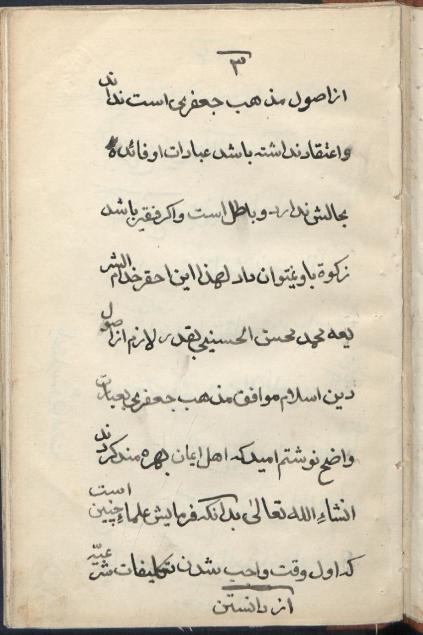 ۳
از اصول مذهب جعفری است نداند
و اعتقاد نداشته باشد عبادات او فائده
بحالش ندارد و باطل است و اکر فقیر باشد
زکوة باو نمیتوان داد لهذا این احقر خدام الشر
یعه محمد محسن الحسینی بقدر لازم از اصول
دین اسلام موافق مذهب جعفری بعبارت
واضح نوشتم امید که اهل ایمان بهره مند کردند
انشاء الله تعالی بدانکه فرمایش علماء چنین است
که اول وقت واجب شدن تکلیفات شرعیّه
از دانستن